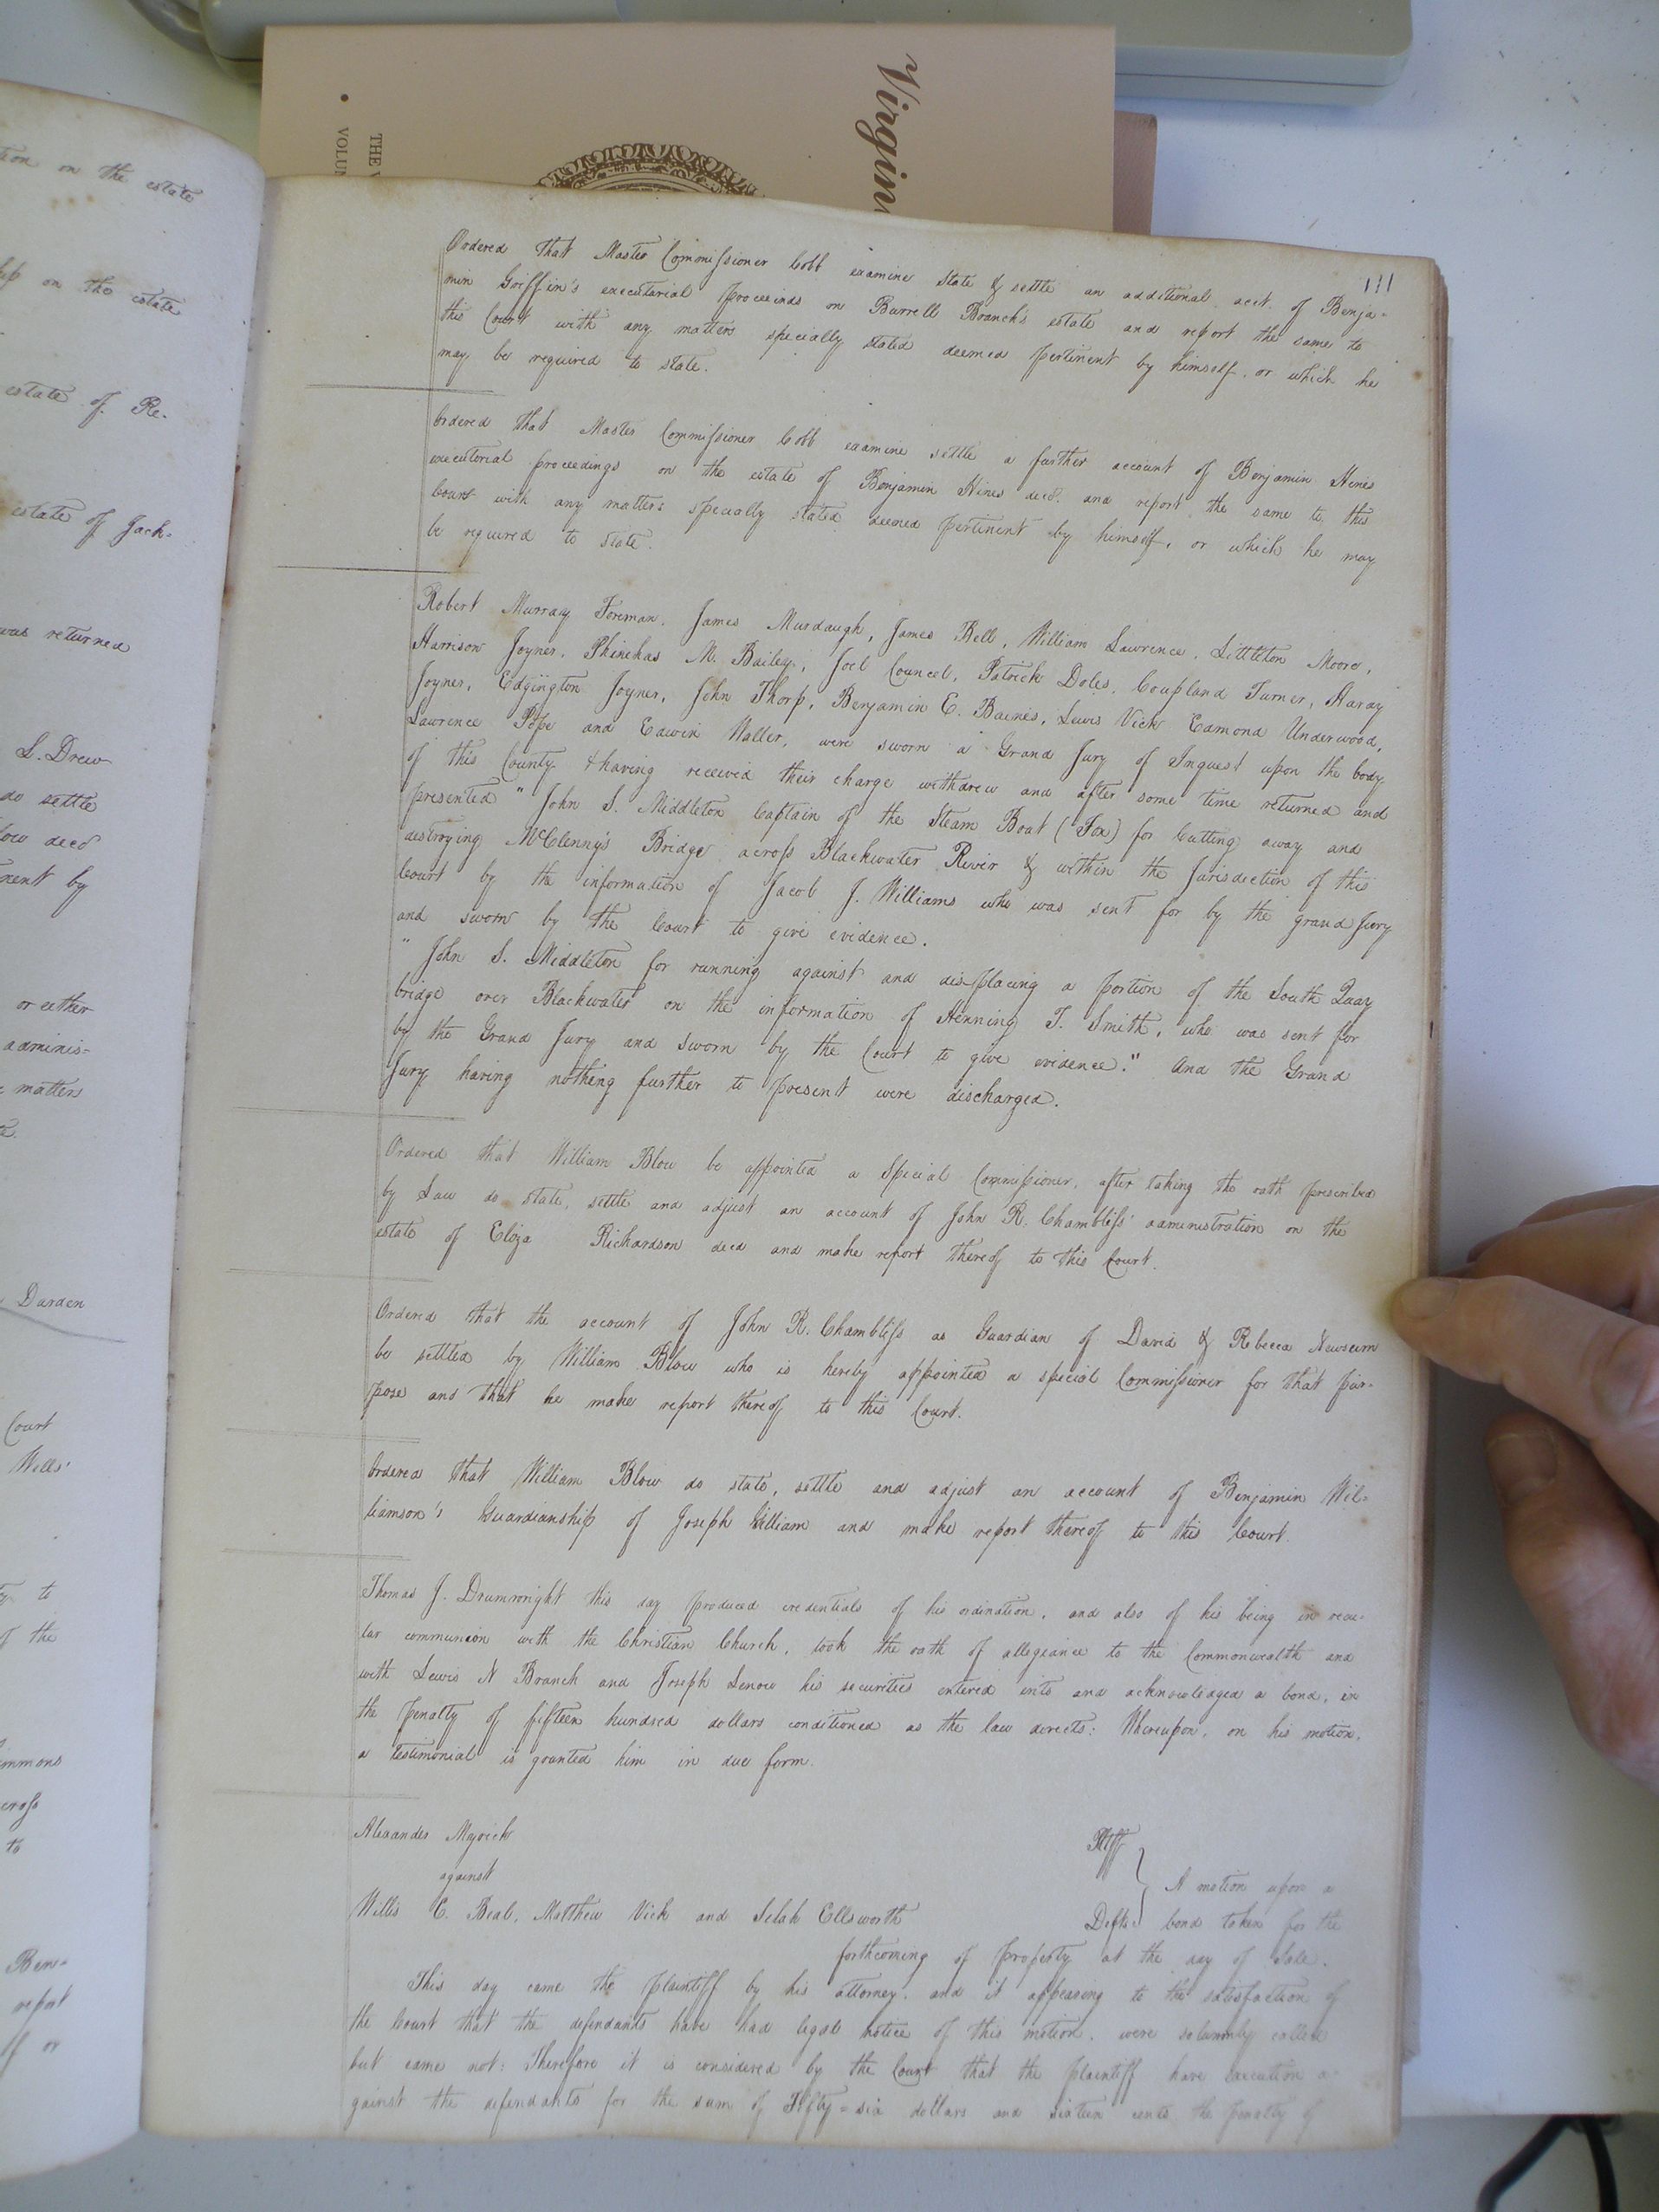 Virgin
THE
VOLU
tion on the estate
on the estate
estate of Re-
estate of Jack-
was returned
S. Drew
do settle
decd
nent by
or either
adminis=
matters
Darden
Court
Wells'
to
of the
mmons
cross
to
Ben=
report
or
111
Ordered that Master Commissioner Cobb examine state & settle an additional acct. of Benja=
min Griffin's executarial proceeinds on Burrell Branch's estate and report the same to
this Court with any matters specially stated deemed pertinent by himself, or which he
may be required to state.
Ordered that Master Commissioner Cobb examine settle a further account of Benjamin Hines
executorial proceedings on the estate of Benjamin Hines decd. and report the same to this
Court with any matters specially stated deemed pertinent by himself, or which he may
be required to state.
Robert Murray Foreman, James Murdaugh, James Bell, William Lawrence, Littleton Moore,
Harrison Joyner, Phinehas M. Bailey, Joel Council, Patrick Doles, Coupland Turner, Haray
Joyner, Edgington Joyner, John Thorp, Benjamin E. Baines, Lewis Vick Edmond Underwood,
Lawrence Pope and Edwin Waller, were sworn a Grand Jury of Inquest upon the body
of this County & having received their charge withdrew and after some time returned and
presented " John S. Middleton Captain of the Steam Boat (Fox) for Cutting away and
destroying McClenny's Bridge across Blackwater River & within the Jurisdiction of this
Court by the information of Jacob J. Williams who was sent for by the grand Jury
and sworn by the Court to give evidence.
" John S. Middleton for running against and displacing a portion of the South Quay
bridge over Blackwater on the information of Henning T. Smith, who was sent for
by the Grand Jury and sworn by the Court to give evidence." And the Grand
Jury having nothing further to present were discharged.
Ordered that William Blow be appointed a Special Commissioner, after taking the oath prescribed
by Law do state, settle and adjust an account of John R. Chambliss' administration on the
estate of Eliza Richardson decd and make report thereof to this Court.
Ordered that the account of John R. Chambliss as Guardian of David & Rebecca Newsum
be settled by William Blow who is hereby appointed a special Commissioner for that pur=
pose and that he make report thereof to this Court.
Ordered that William Blow do state, settle and adjust an account of Benjamin Wil=
liamson's Guardianship of Joseph Gilliam and make report thereof to this Court.
Thomas J. Drumwright this day produced credentials of his ordination, and also of his being in regu-
lar communion with the Christian Church, took the oath of allegiance to the Commonwealth and
with Lewis N Branch and Joseph Lenow his securities entered into and acknowledged a bond, in
the penalty of fifteen hundred dollars conditioned as the law directs: Whereupon, on his motion,
a testimonial is granted him in due form.
Alexander Myrick Pltff
against
A motion upon a
Willis E. Beal, Matthew Vick and Selah Ellsworth Defts bond taken for the
forthcoming of property at the day of Sale.
This day came the plaintiff by his attorney, and it appearing to the satisfaction of
the Court that the defendants have had legal notice of this motion, were solemnly called
but came not: Therefore it is considered by the Court that the plaintiff have execution a-
gainst the defendants for the sum of Fifty=six dollars and sixteen cents the penalty of